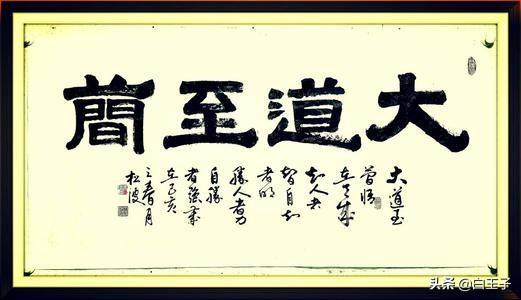 大道至簡
大道至
簡悟
在天成
知人者
智自知
者明
勝人者力
自勝
者強歲
在己亥
之春月
松波
头条 @白王子